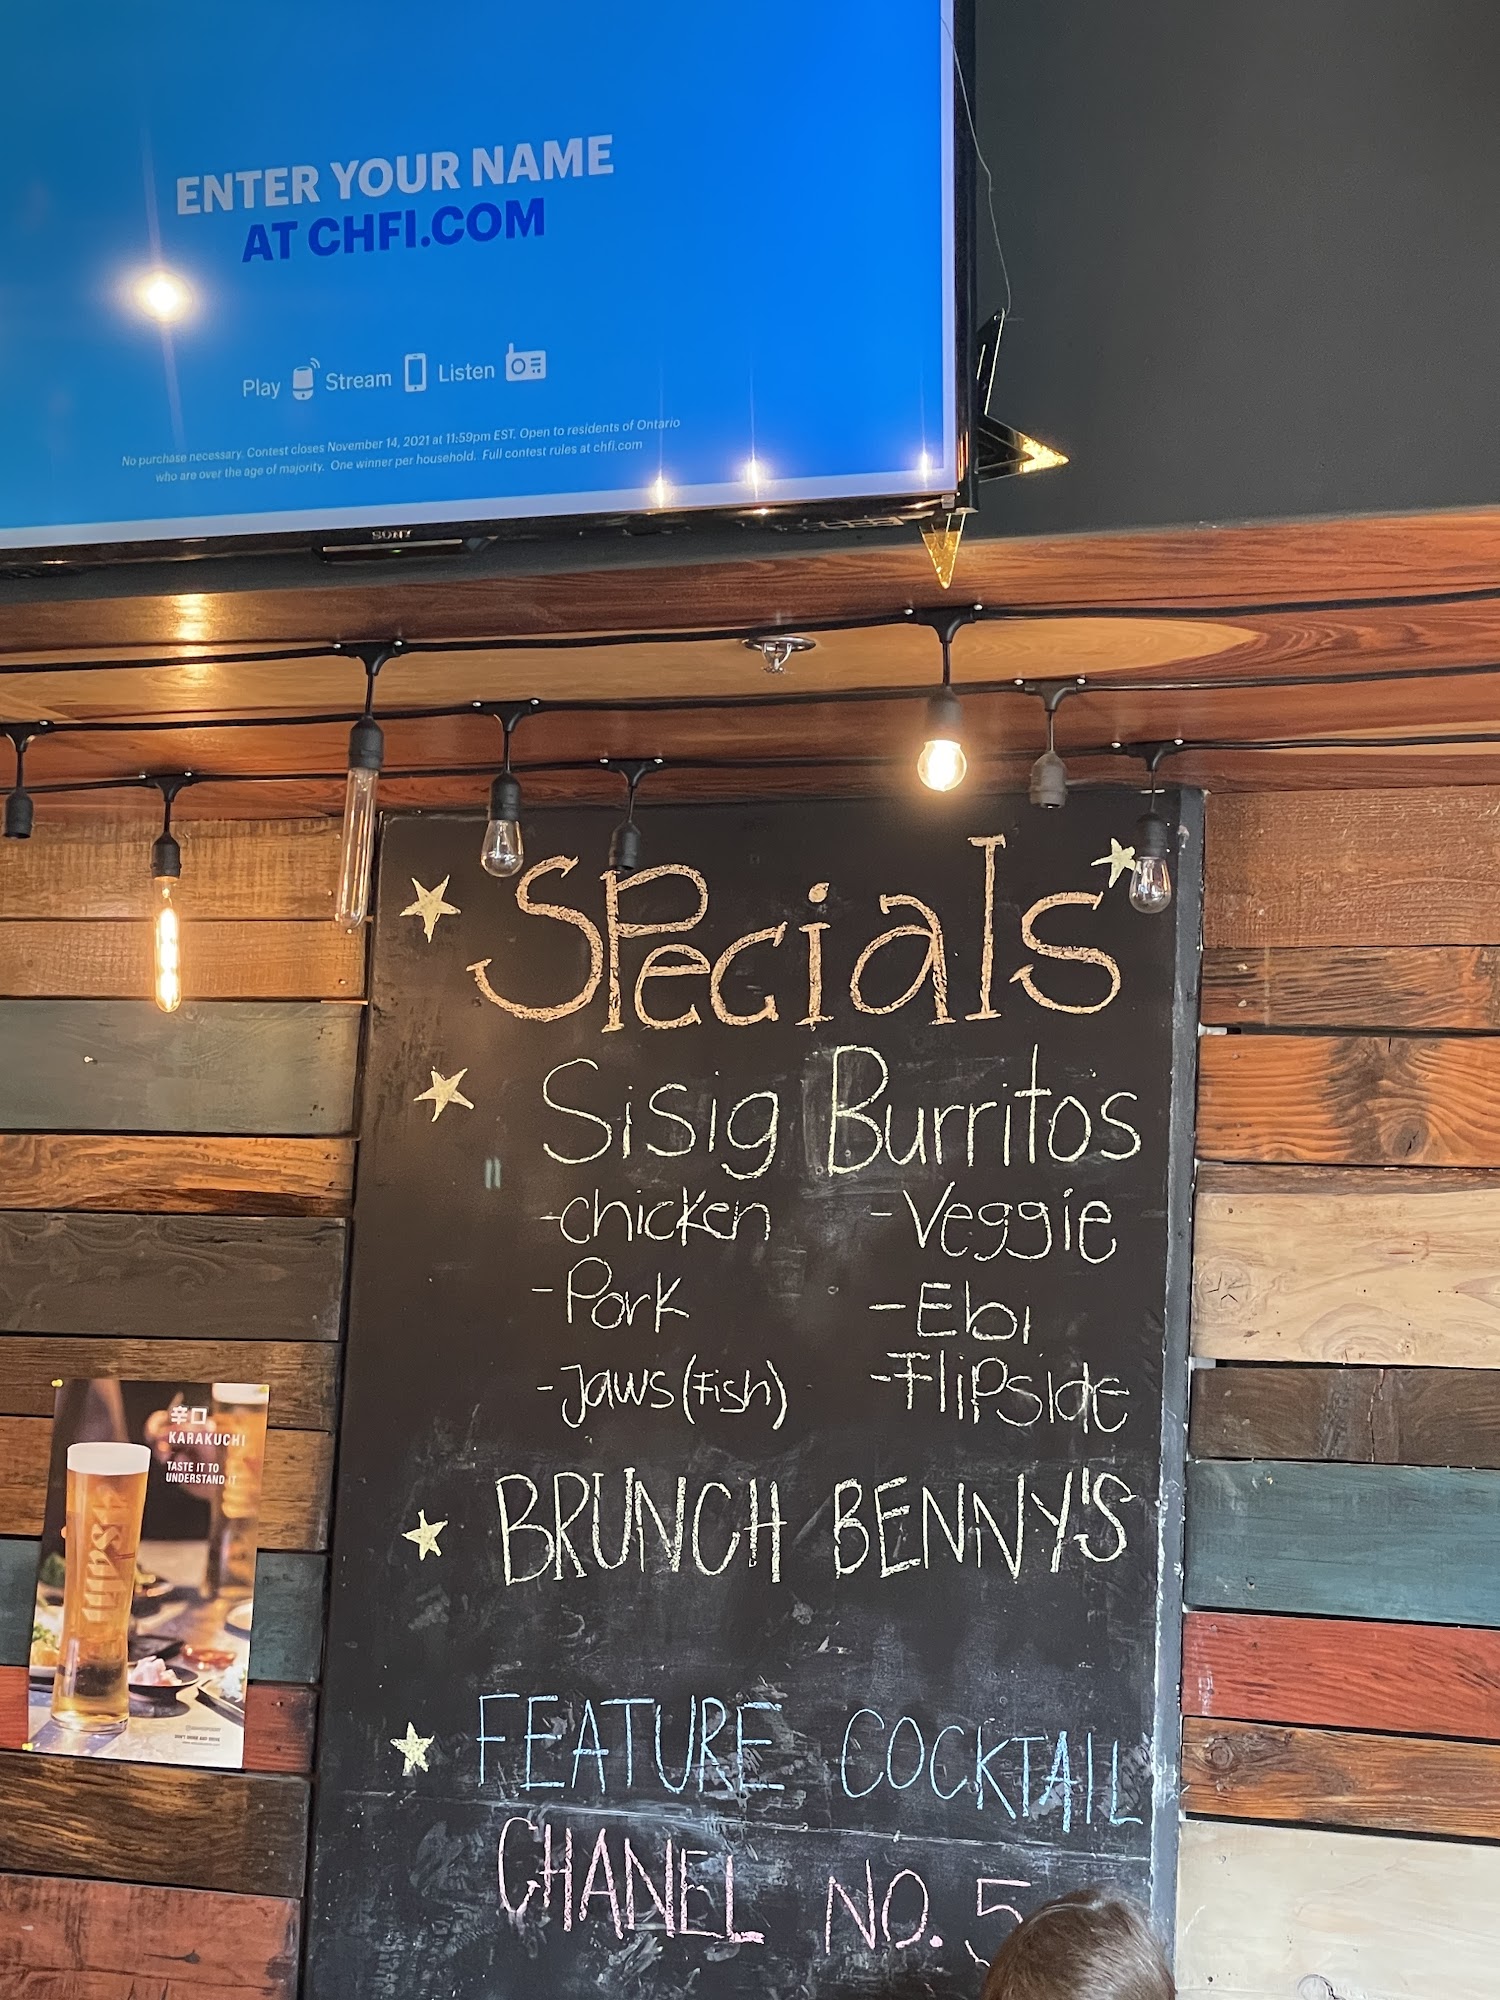 ENTER YOUR NAME
AT CHFI.COM
Play Stream Listen
No purchase necessary. Contest closes November 14, 2021 at 11:59pm EST. Open to residents of Ontario
who are over the age of majority. One winner per household. Full contest rules at chfi.com
SONY
SPecials
Sisig Burritos
-chicken
-Veggie
-Pork
-Ebi
-Jaws(Fish)
-FliPside
BRUNCH BENNY'S
FEATURE COCKTAIL
CHANEL NO. 5
辛口
KARAKUCHI
TASTE IT TO
UNDERSTAND IT
Asahi